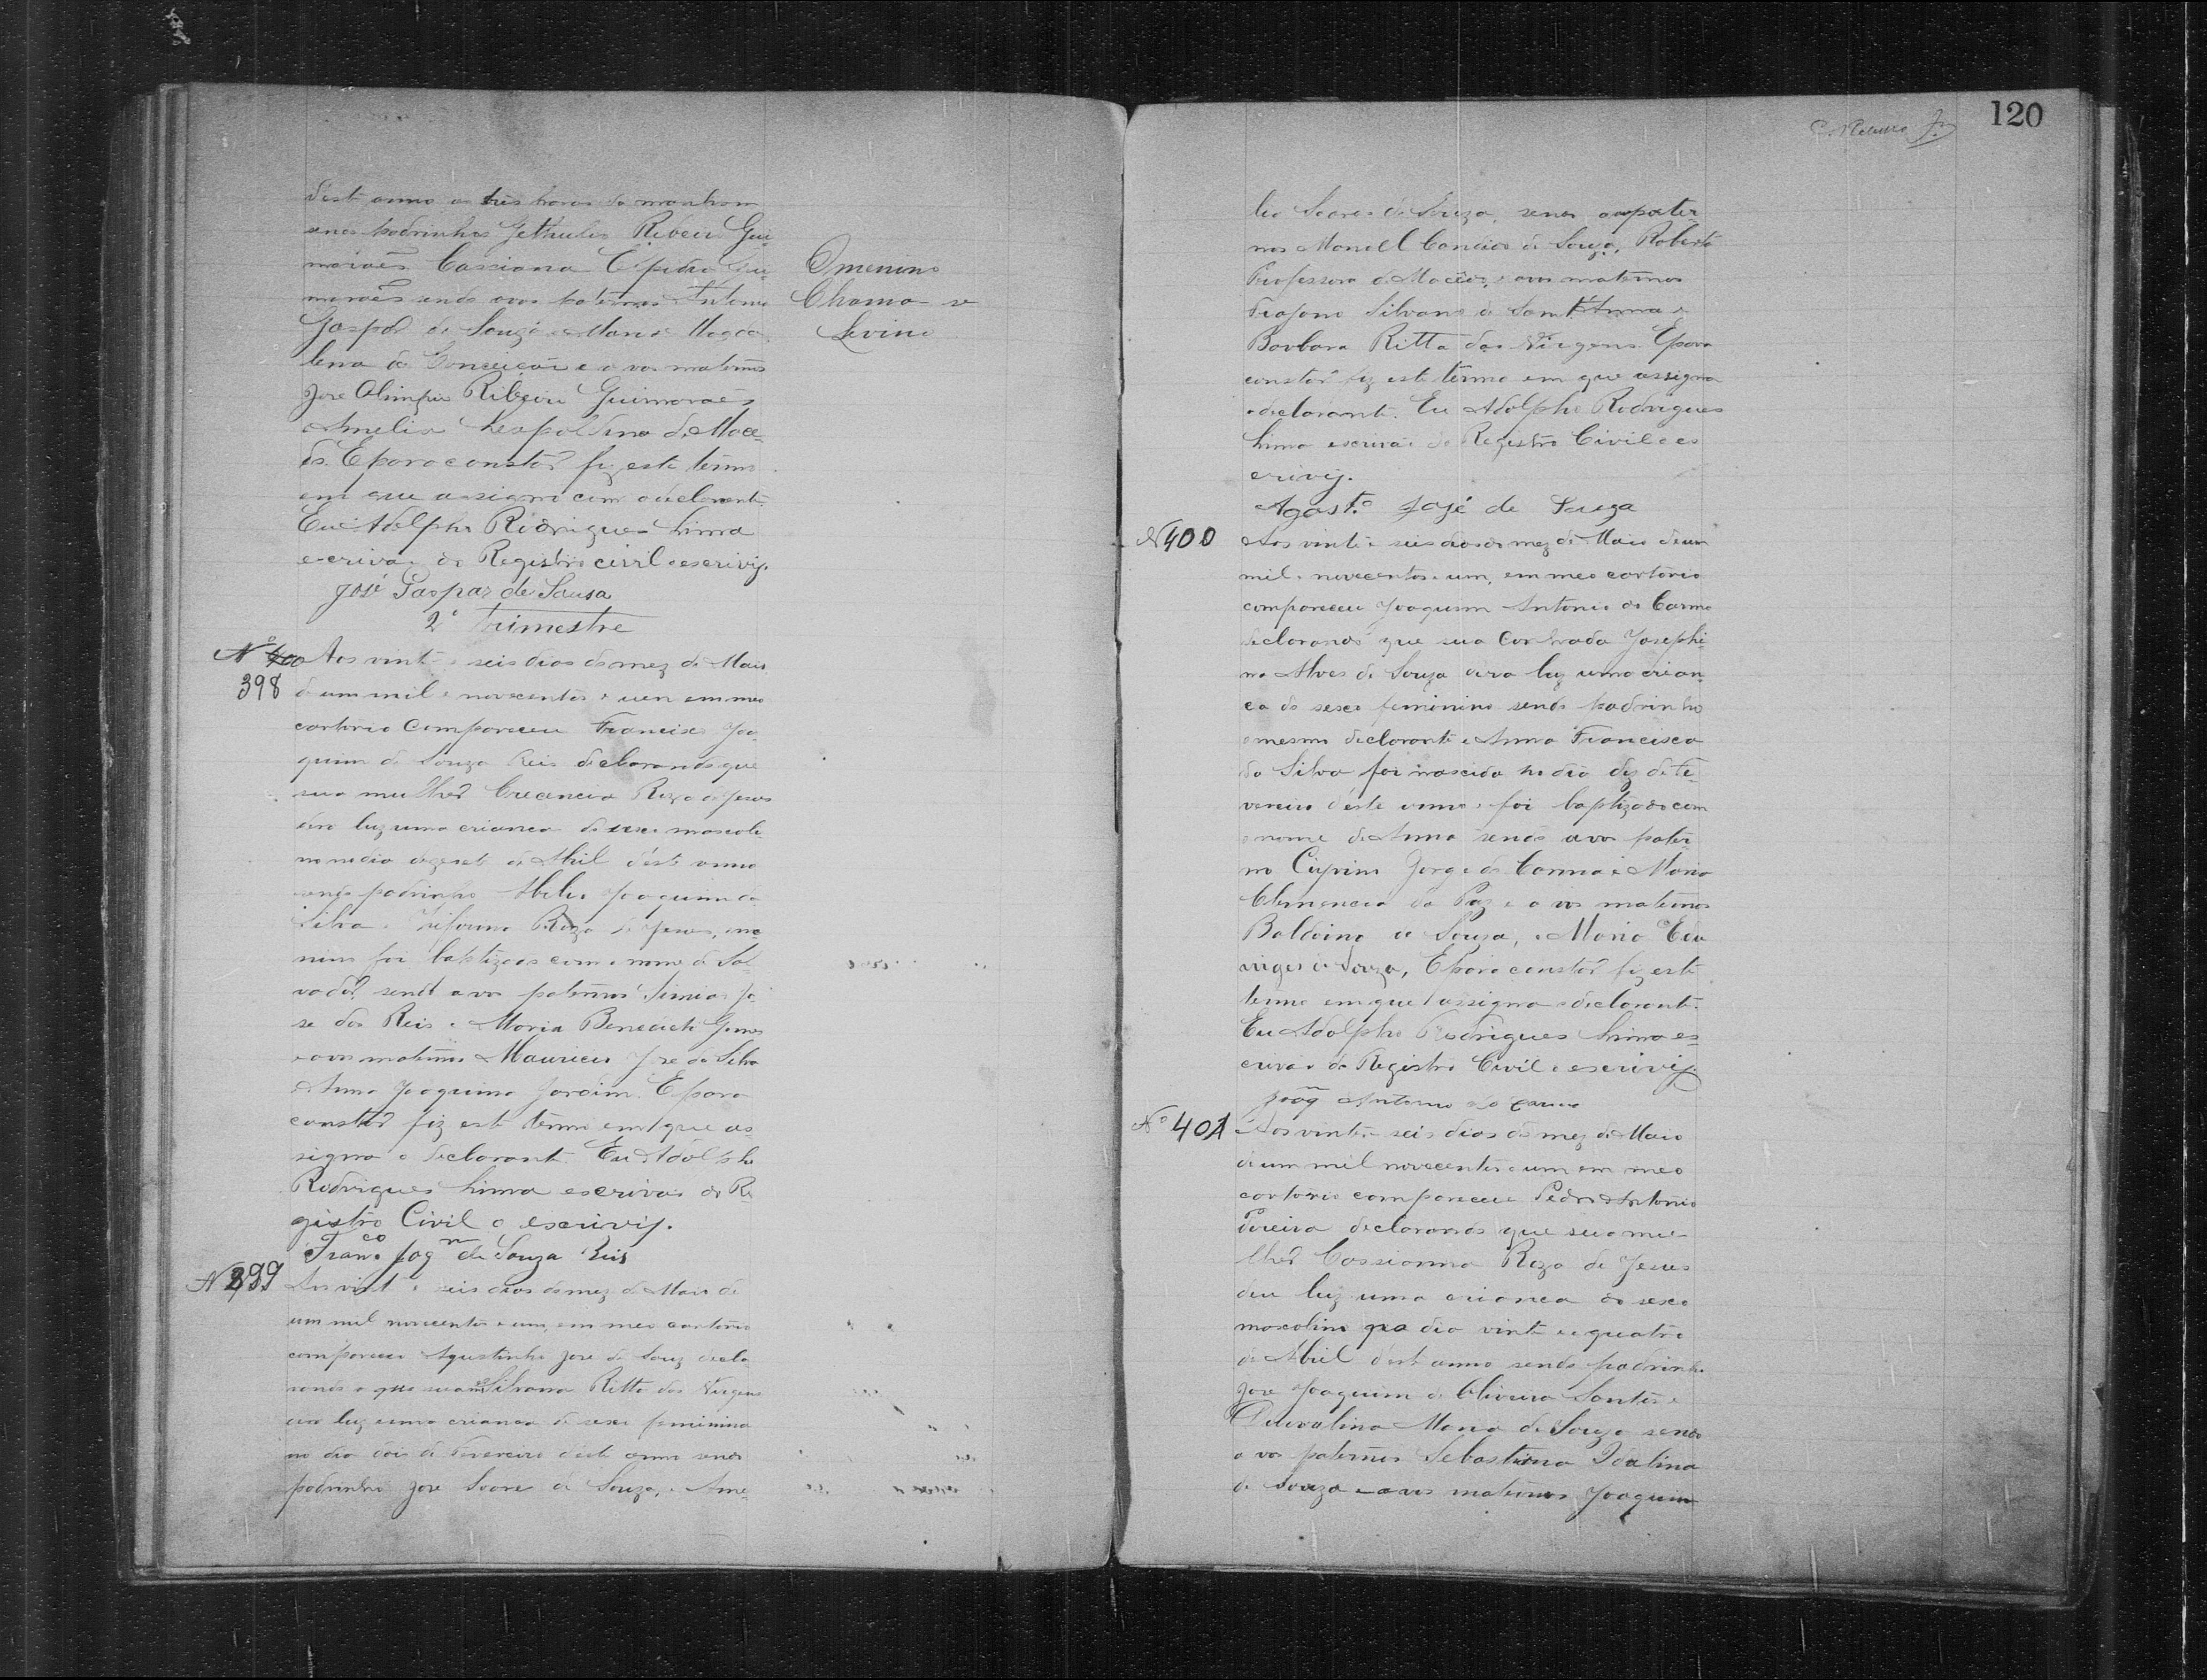 d'este anno as tres horas da manham
sendo padrinhos Gethulio Ribeiro Gui
marães Cassiana Elpidia Gui
marães sendo avos paternos Antonio
Gaspar de Souza e Maria Magda
lena da Conceição e avos maternos
José Olimpio Ribeiro Guimarães
Amelia Leopoldina de Mace-
do. E para constar fiz este termo
em que assigno com o declarante
Eu Adolpho Rodrigues Lima
escrivão do Registro civil o escrivy.
José Gaspar de Sousa
O menino
Chama-se
Levino
2º Trimestre
Nº 400
398
Aos vinte e seis dias do mez de Maio
de um mil e novecentos e um em meo
cartorio Compareceu Francisco Joa
quim de Souza Reis declarando que
sua mulher Crecencia Roza de Jesus
deu luz uma crianca do sexo mascoli
no no dia dezesete de Abril d'este anno
sendo padrinho Joaquim da
Silva e Roza de Jesus, o me
nino foi baptizado com o nome de Sal
vador, sendo avos paternos Jo
se dos Reis e Maria Benedicta Gomes
e avos maternos Mauricio Jose da Silva
e Anna Joaquina Jardim. E para
constar fiz este termo em que as
signa o declarante. Eu Adolpho
Rodrigues Lima escrivão do Re
gistro Civil o escrivij.
Franco Joqm de Souza Reis
Nº 399
Aos vinte e seis dias do mez de Maio de
um mil novecentos e um, em meo cartorio
compareceu Agustinho Jose de Souz decla
rando o que sua mer Silvana Ritta das Virgens
deu luz uma crianca do sexo feminino
no dia dois de Fevereiro d'este anno sendo
padrinho Jose Soares de Souza, e Ame-
120
lia Soares de Souza, sendo avos pater-
nos Manoel Candido de Souza, Roberta
Professora de Macêdo, e avos maternos
Trajano Silvano de Sant'Anna e
Barbara Ritta das Virgens. E para
constar fiz este termo em que assigna
o declarante. Eu Adolpho Rodrigues
Lima escrivão do Registro Civil o es
crivij.
Agosto José de Souza
Nº 400
Aos vinte e seis dias do mez de Maio de um
mil e novecentos e um, em meo cartorio
compareceu Joaquim Antonio do Carmo
declarando que sua Cunhada Josephi-
na Alves de Souza dera luz uma crian-
ca do sexo feminino sendo padrinho
o mesmo declarante e Anna Francisca
da Silva foi nascida no dia dez de Fe-
vereiro d'este anno e foi baptizado com
o nome de Anna sendo avos pater-
no Jorge do Carmo e Maria
Clemencia da Paz e avos maternos
Baldoino de Souza, e Maria Edu
viges de Souza, E para constar fiz este
termo em que assigna o declarante.
Eu Adolpho Rodrigues Lima es-
crivão do Registro Civil o escrivij.
Joaqm Antonio do Carmo
Nº 401
Aos vinte e seis dias do mez de Maio
de um mil novecentos e um em meo
cartorio compareceu Pedro Antonio
Pereira declarando que sua mu-
lher Cassianna Roza de Jesus
deu luz uma crianca do sexo
mascolino no dia vinte e quatro
de Abril d'este anno sendo padrinho
Jose Joaquim de Oliveira Santos e
Maria de Souza sendo
avos paternos Sebastiana Idalina
de Souza e avos maternos Joaquim